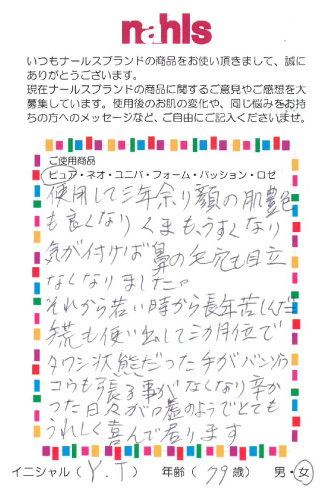 nahls
いつもナールスブランドの商品をお使い頂きまして、誠に
ありがとうございます。
現在ナールスブランドの商品に関するご意見やご感想を大
募集しています。使用後のお肌の変化や、同じ悩みをお持
ちの方へのメッセージなど、ご自由にご記入くださいませ。
ご使用商品
ピュア・ネオ・ユニバ・フォーム・パッション・ロゼ
使用して三年余り顔の肌艶
も良くなりくまもうすくなり
気が付けば鼻の毛穴も目立
なくなりました。
それから若い時から長年苦しんだ
荒も使い出して三カ月位で
タワシ状態だった手がバンソウ
コウも張る事がなくなり辛か
った日々が嘘のようでとても
うれしく喜んで居ります
イニシャル（Y.T）　年齢（79歳）　男・女